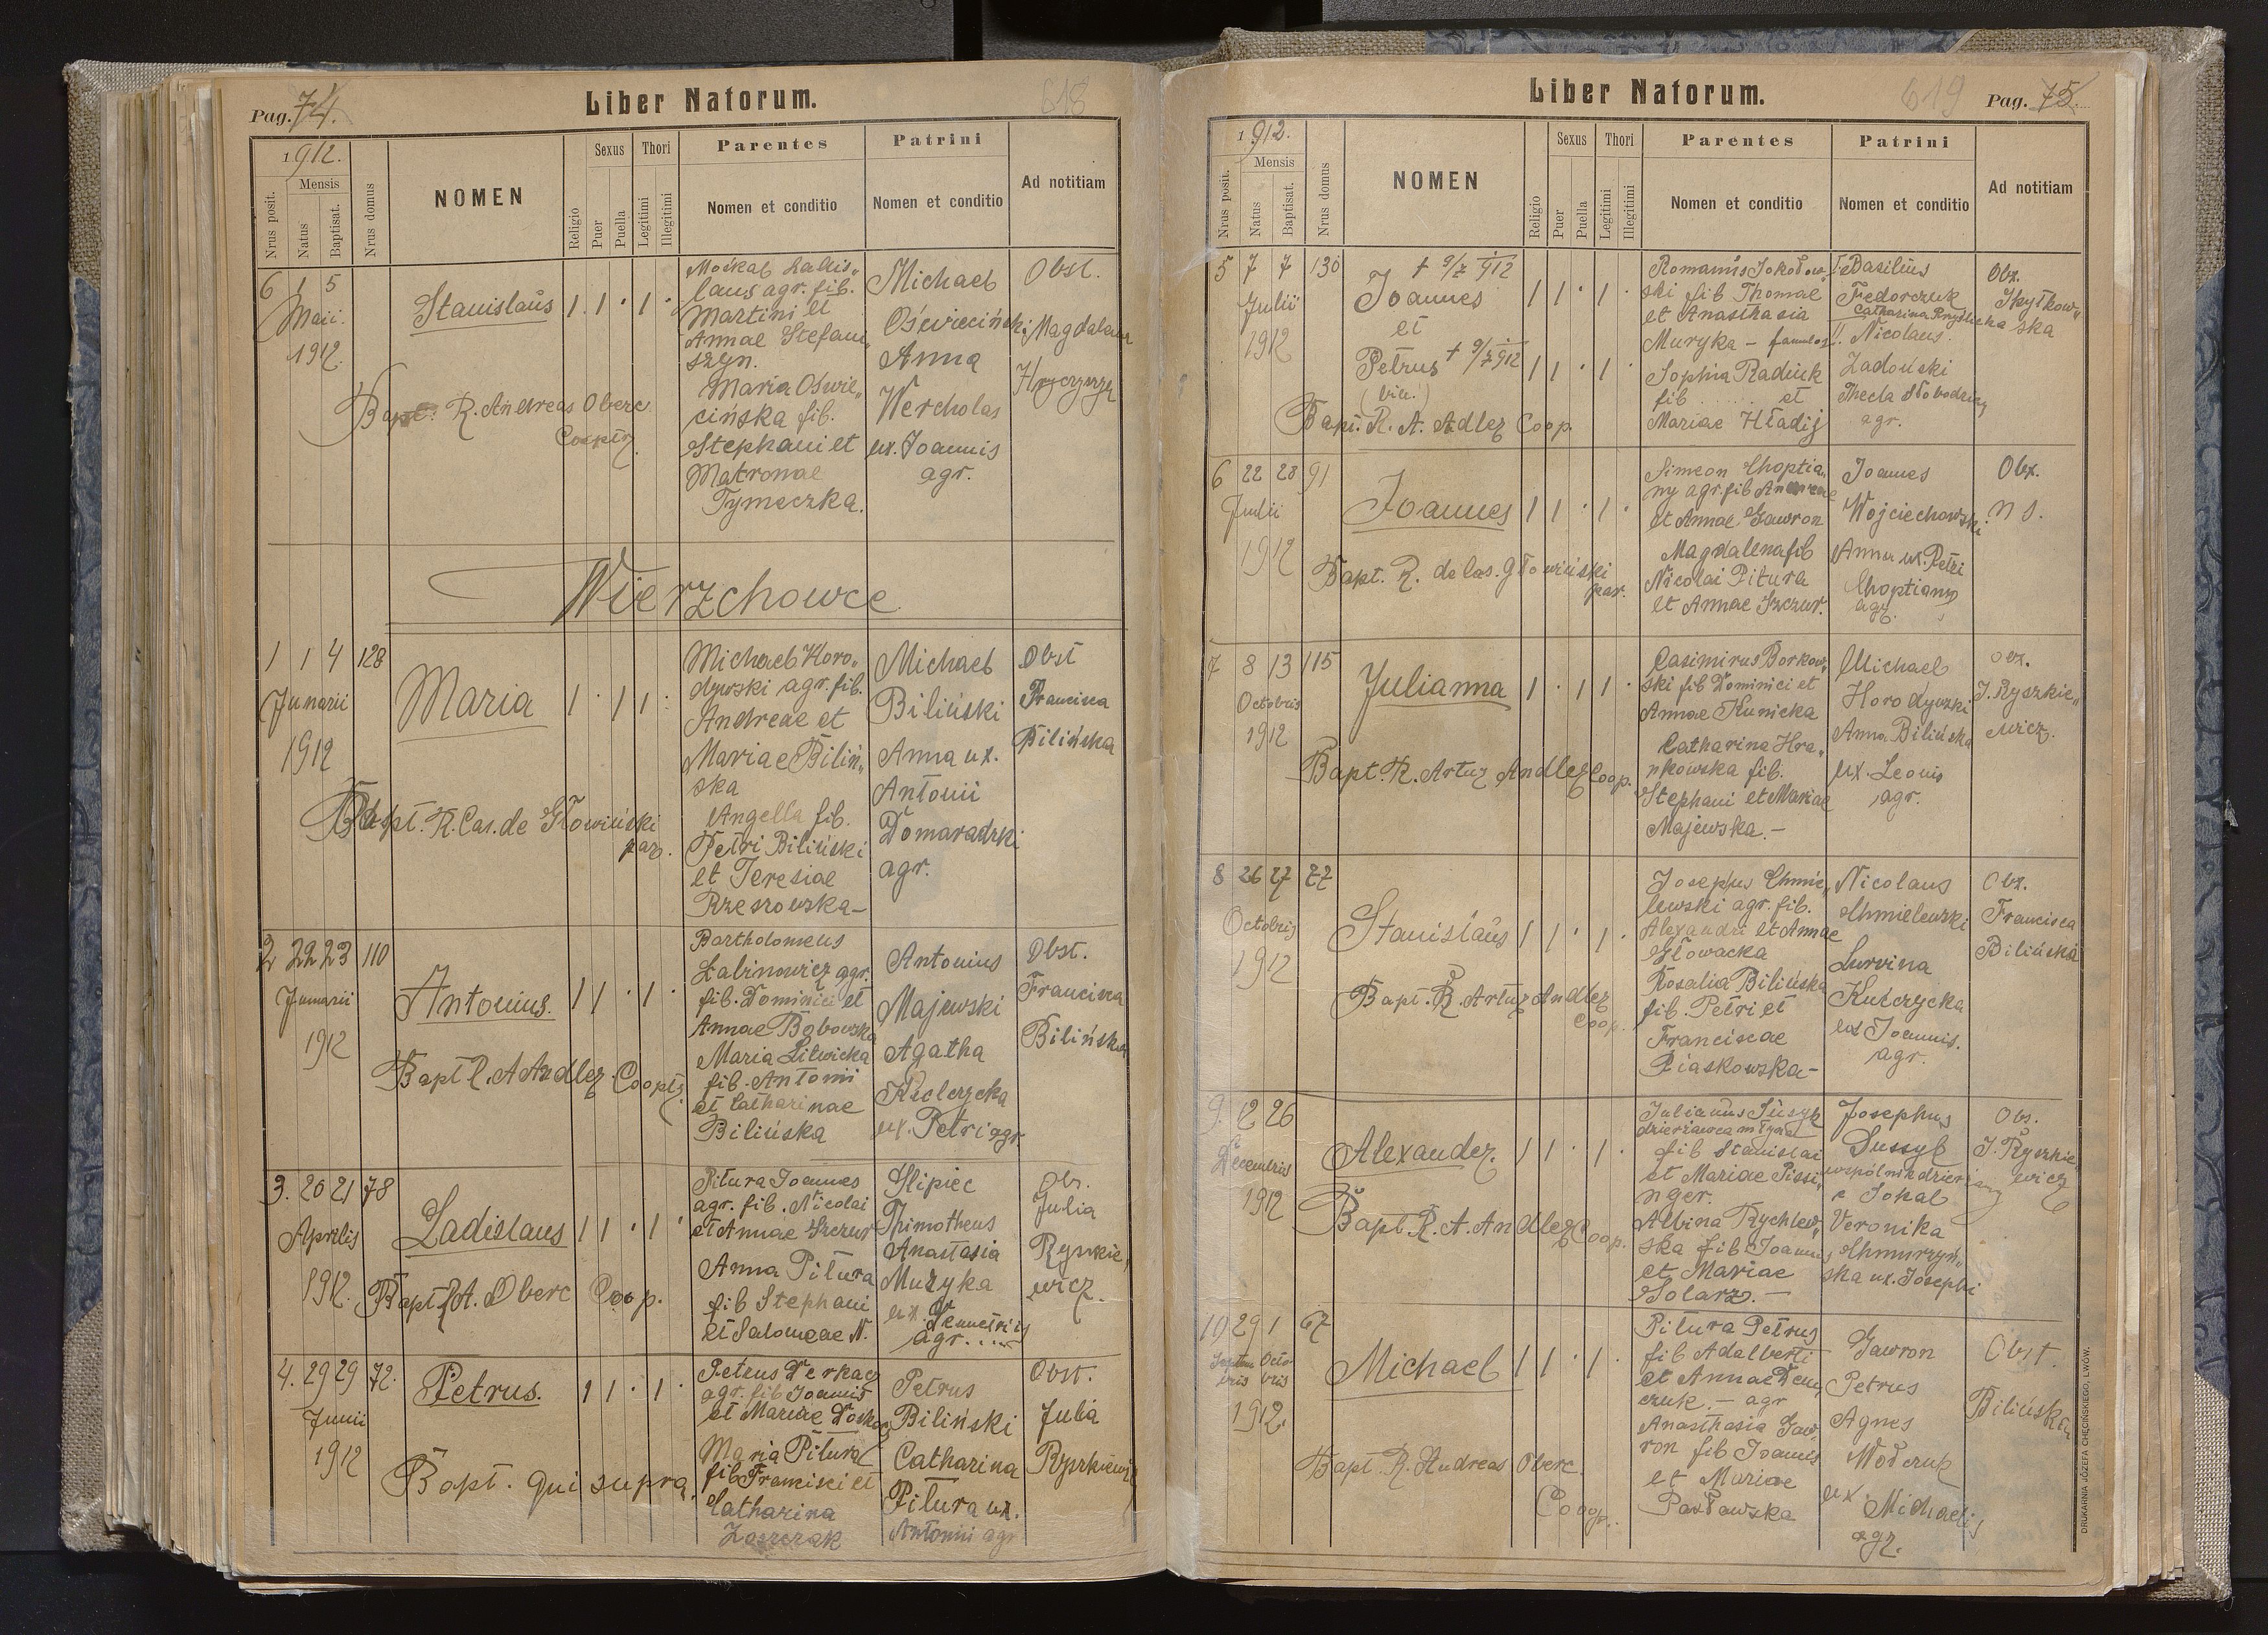 Pag. 74.
Liber Natorum.
618
1912.
Nrus posit.
Mensis
Natus
Baptisat.
Nrus domus
NOMEN
Religio
Sexus
Puer
Puella
Thori
Legitimi
Illegitimi
Parentes
Nomen et conditio
Patrini
Nomen et conditio
Ad notitiam
6 1 5
Maii
1912.
Stanislaus
1 1 . 1 .
Bapt. R. Andreas Oberc
Cooptr.
Moskal Ladis„
laus agr. fil.
Martini et
Annae Stefani„
szyn.
Maria Oświe„
cińska fil.
Stephani et
Matronae
Tymeczka.
Michael
Oświeciński
Anna
Wercholas
ux. Joannis
agr.
Obst.
Magdalena
Wierzchowce
1 1 4 128
Januarii
1912
Maria
1 . 1 1 .
Bapt. R. Cas. de Głowiński
par.
Michael Horo„
dywski agr. fil.
Andreae et
Mariae Biliń„
ska
Angella fil.
Petri Biliński
et Teresiae
Rzeszowska-
Michael
Biliński
Anna ux.
Antonii
Domaradzki
agr.
Obst
Francisca
Bilińska
2 22 23 110
Januarii
1912
Antonius.
1 1 . 1 .
Bapt R. A Andler Cooptr.
Bartholomeus
Łabinowicz agr.
fil. Dominici et
Annae Bobowska
Maria Litwicka
fil. Antonii
et Catharinae
Bilińska
Antonius
Majewski
Agatha
Kulczycka
ux. Petri agr.
Obst.
Francisca
Bilińska
3. 20 21 78
Aprilis
1912.
Ladislaus
1 1 . 1 .
Bapt R A. Oberc Coop.
Pitura Joannes
agr. fil. Nicolai
et Annae Szczur
Anna Pitura
fil Stephani
et Salomeae N.
Slipiec
Thimotheus
Anastasia
Muzyka
ux. Demetrii
agr.....
Ob.
Julia
Ryszkie„
wicz.
4. 29 29 72.
Junii
1912
Petrus.
1 1 . 1 .
Bapt. qui supra.
Petrus Derkacz
agr. fil Joannis
et Mariae
Maria Pitura
fil Francisci et
Catharina
Zaszczak
Petrus
Biliński
Catharina
Pitura ux.
Antonii agr
Obst.
Julia
Ryszkiewicz
Liber Natorum.
619
Pag. 75.
1912.
Nrus posit.
Mensis
Natus
Baptisat.
Nrus domus
NOMEN
Religio
Sexus
Puer
Puella
Thori
Legitimi
Illegitimi
Parentes
Nomen et conditio
Patrini
Nomen et conditio
Ad notitiam
5 7 7 130
Julii
1912
† 9/7 912
Joannes
et
Petrus † 9/7 912
1 1 . 1 .
1 1 . 1 .
Bapt. R. A. Adler Coop.
Romanus Sokołow„
ski fil Thomae
et Anasthasia
Muryka - famulos
Sophia Radiuk
fil ...... et
Mariae Hładij
I Basilius
Fedorczuk
Catharina
II. Nicolaus
Zadoński
Thecla Słobodzian
agr.
Obx.
Spytkow„
ska
6 22 28 91
Julii
1912
Joannes
1 1 . 1 .
Bapt. R. de Cas. Głowiński
par.
Simeon Choptia„
ny agr. fil Andreae
et Annae Gawron
Magdalena fil
Nicolai Pitura
et Annae Szczur.
Joannes
Wojciechowski
Anna ux. Petri
Choptiany
agr.
Obx.
n s.
7 8 13 115
Octobris
1912
Julianna
1 . 1 1 .
Bapt. R. Artur Andler Coop.
Casimirus Borkow„
ski fil Dominici et
Annae Kunicka
Catharina Hra„
nkowska fil.
Stephani et Mariae
Majewska.-
Michael
Horodywski
Anna Bilińska
ux. Leonis
agr.
obx.
J. Ryszkie„
wicz.
8 26 27 77
Octobris
1912
Stanislaus
1 1 . 1 .
Bapt. R. Artur Andler
Coop.
Josephus Chmie„
lewski agr. fil.
Alexandri et Annae
Głowacka
Rosalia Bilińska
fil. Petri et
Franciscae
Piaskowska-
Nicolaus
Chmielewski
Lurvina
Kulczycka
ux Joannis.
agr.
Obx.
Francisca
Bilińska
9. 12 26
Decembris
1912
Alexander.
1 1 . 1 .
Bapt. R. A. Andler Coop.
Julianus Susyk
dzierżawca młyna
fil Stanislai
et Mariae Pissi„
nger.
Albina Rychlew„
ska fil Joannis
et Mariae
Solarz.-
Josephus
Sussyk
współnik dzierżawy
z Sokal
Veronika
Chmurzyń„
ska ux. Josephi
Obs.
J. Ryszkie„
wicz
10 29 1 67
Septem Octo
bris bris
1912.
Michael
1 1 . 1 .
Bapt R. Andreas Oberc.
Coop.
Pitura Petrus
fil Adalberti
et Annae Dem„
czuk.- agr
Anasthasia Gaw„
ron fil Joannis
et Mariae
Pasławska
Gawron
Petrus
Agnes
Wołczuk
ux. Michaelis
agr.
Obst.
Bilińska
DRUKARNIA JÓZEFA CHĘCIŃSKIEGO, LWÓW.